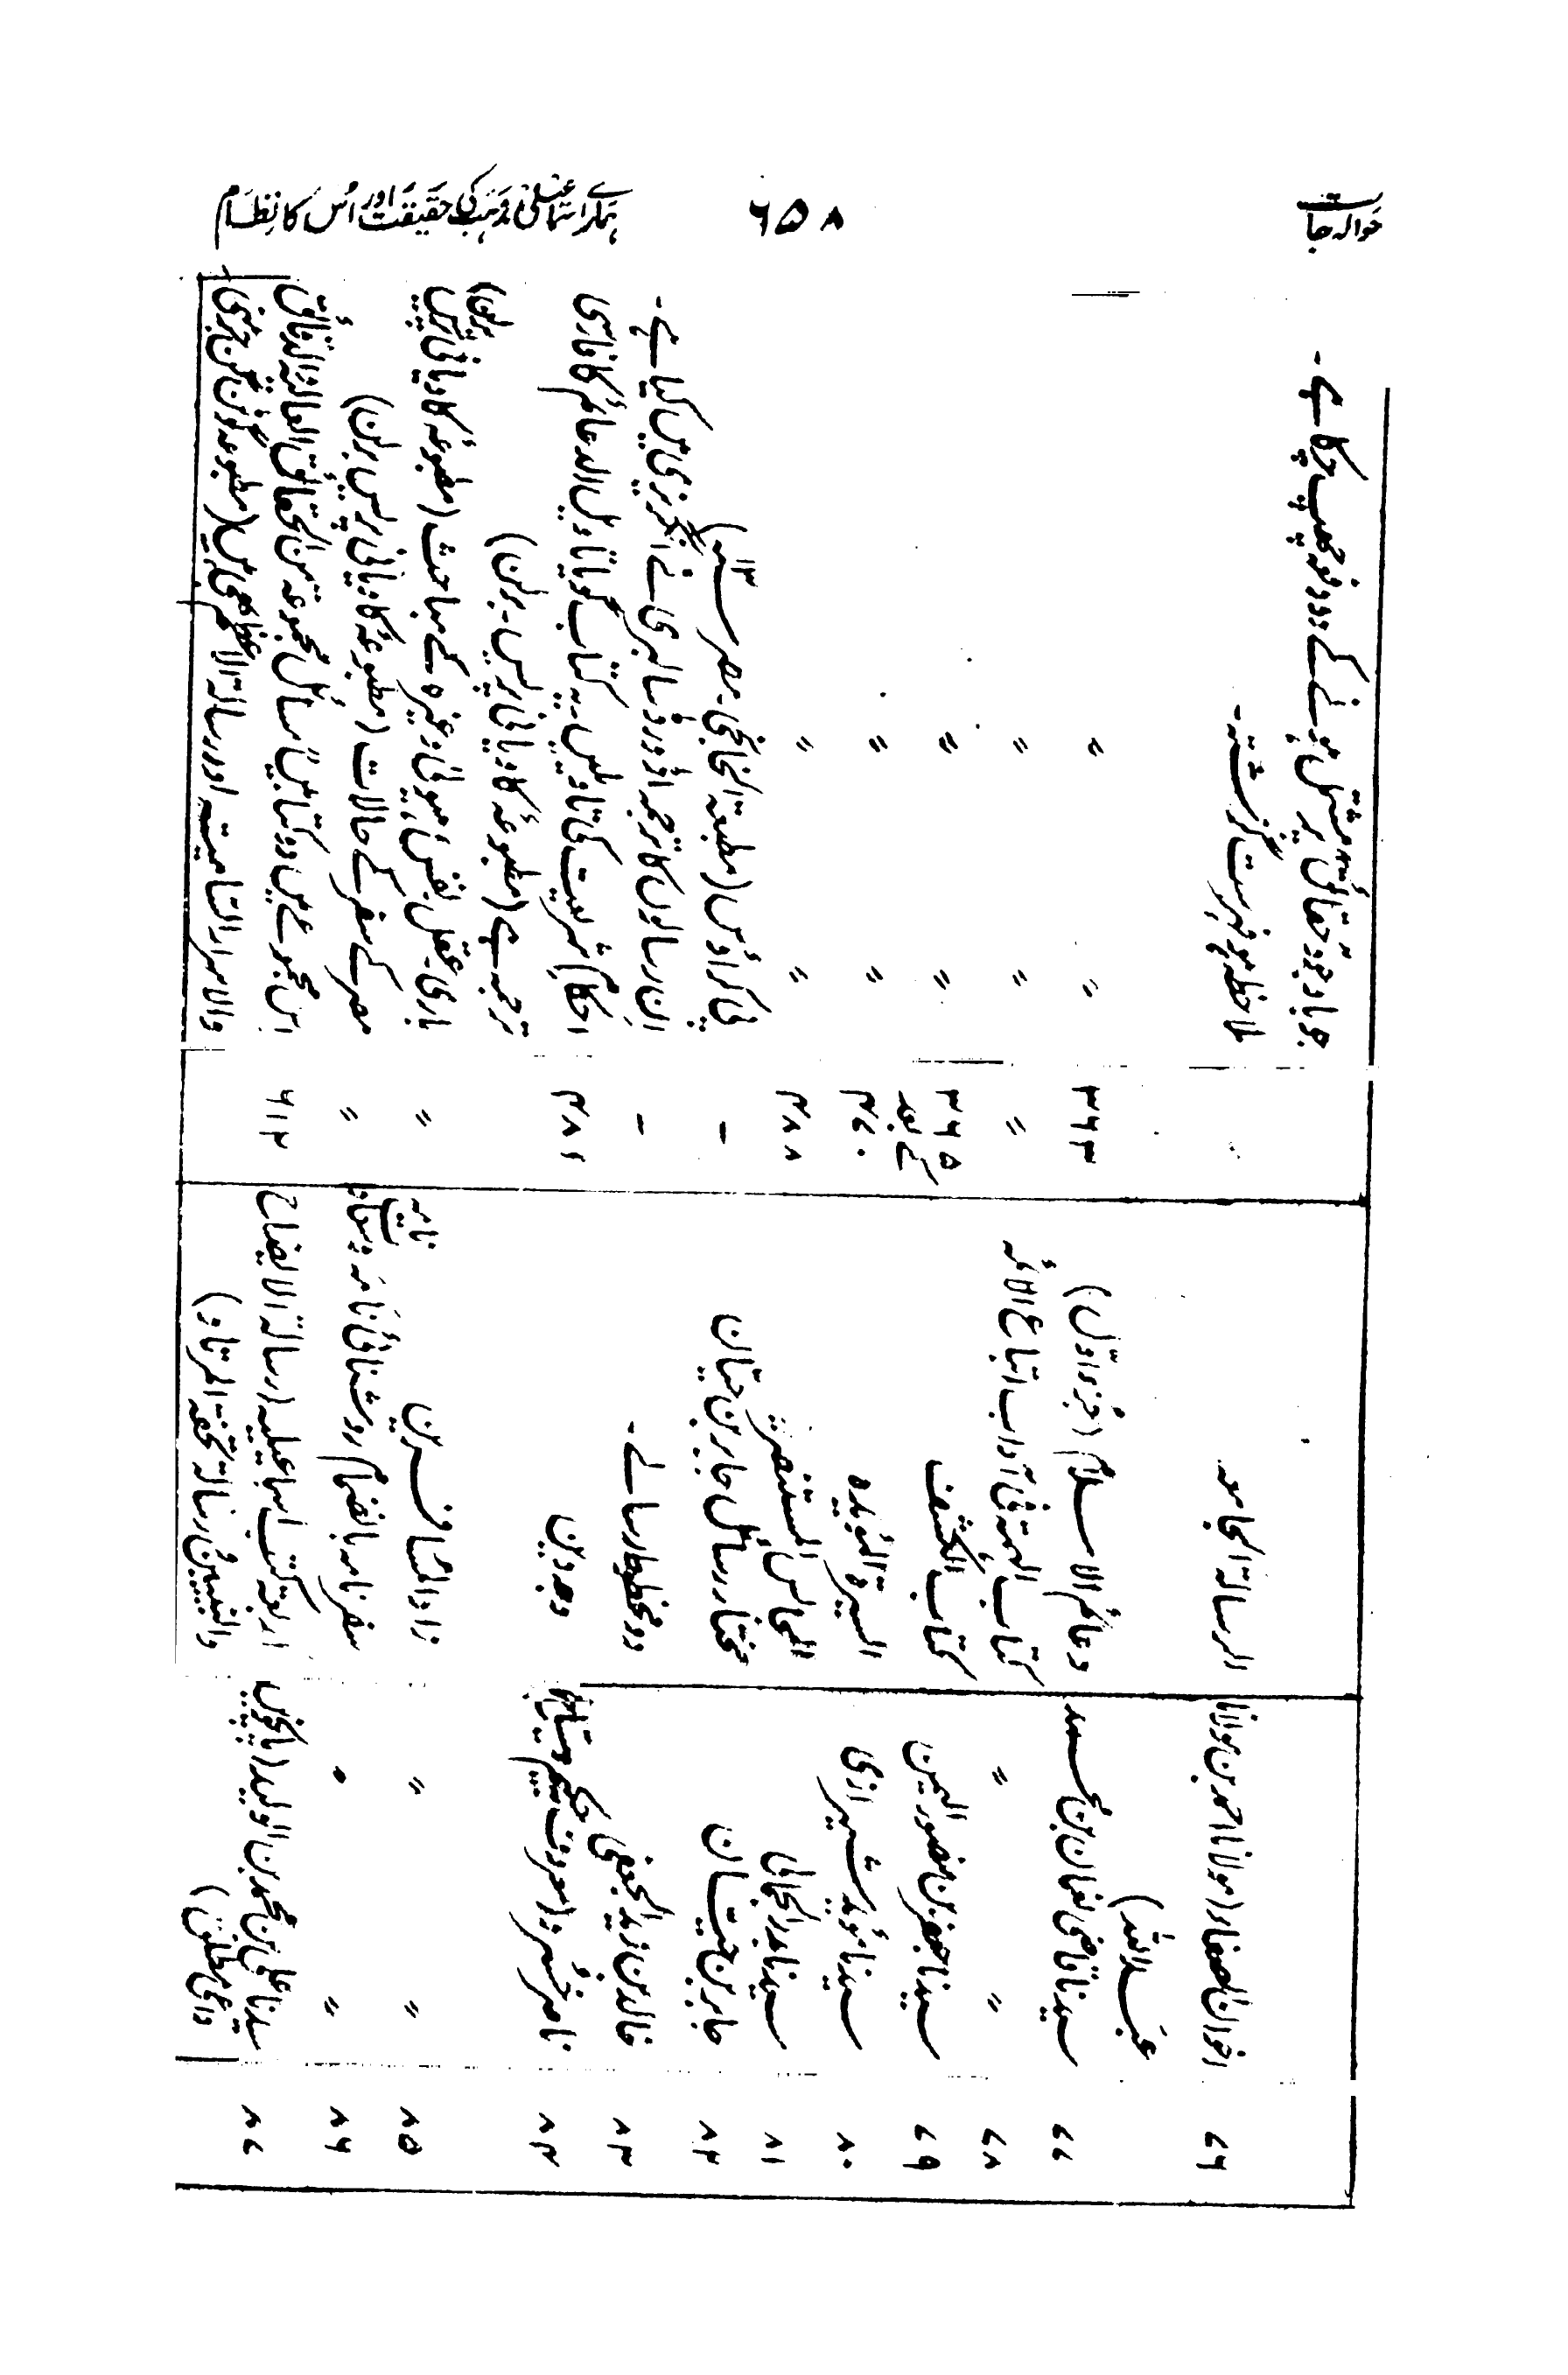 حوالہ جات
۶۵۸
ہمارے اسماعیلی مذہب کی حقیقت اور اُس کا نظام
جو باوجود حقائق پر مشتمل ہونے کے دو دفعہ چھپ چکا ہے۔
۷۶
اخوان الصفاء (مولانا احمد بن مولانا
عبد اللہ)
الرسالۃ الجامعہ
ملاحظہ ہو فہرست گزشتہ۔
۷۷
سیدنا قاضی نعمان بن محمد
دعائم الاسلام (جزو اوّل)
۳۶۳
〃 〃
۷۸
〃 〃
کتاب الہمۃ فی آداب اتباع الائمہ
〃
〃 〃
۷۹
سیدنا جعفر بن منصور الیمن
کتاب الکشف
۳۶۵
کے بعد
〃 〃
۸۰
سیدنا مؤید شیرازی
السیرۃ المؤیدیہ
۴۷۰
〃 〃
۸۱
سیدنا بدر الجمالی
المجالس المستنصریہ
۴۸۸
〃 〃
۸۲
جابر بن حیان
مختار رسائل جابر بن حیان
–
پی کراؤس (مطبعۃ الخانجی۔ مصر
۸۳
خالد بن زید الجعفی
دو مخطوط رسالے۔
–
ان رسالوں کا ترجمہ اڈورڈ سالبری نے انگریزی میں کیا ہے۔
۸۴
ناصر خسرو (معروف بہ
وجہ دین
۴۸۱
احکام شریعت کی تاویلیں۔ یہ کتاب گویا تاویل الدعائم کا فارسی
ترجمہ ہے (مطبوعہ کاویانی پریس۔ برلن)
۸۵
〃 〃
زاد المسافرین
〃
باری، عقل، نفس، ہیولیٰ وغیرہ کے مباحث (مطبوعہ کاویانی پریس
برلن)
۸۶
〃 〃
سفر نامہ بانضمام روشنائی نامہ و سعادت
نامہ
〃
مصر کے سفر کے حالات (مطبوعہ کاویانی پریس برلن)
۸۷
سیدنا علی بن محمد بن الولید (پانچویں
داعی مطلق)
اربعۃ کتب اسماعیلیہ (رسالۃ الایضاح
والتبیین، رسالۃ تحفۃ المرتاد)
۶۱۲
اس مجموعے میں دو کتابیں مسائل مجموعۃ من الحقائق العالیۃ الدقائق
والاسرار السامیۃ اور رسالۃ الاسم الاعظم بھی ہیں (مطبوعہ گوٹنگن جرمنی